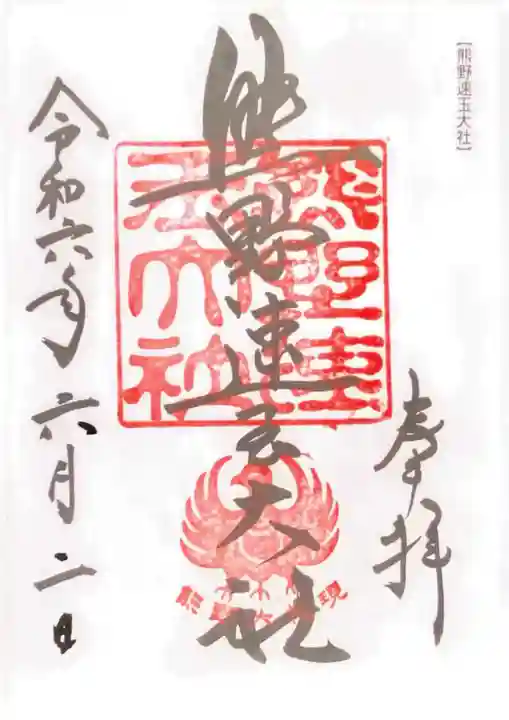 【熊野速玉大社】
奉拝
熊野速玉大社
熊野速玉大社
熊野大権現
令和六年六月二日